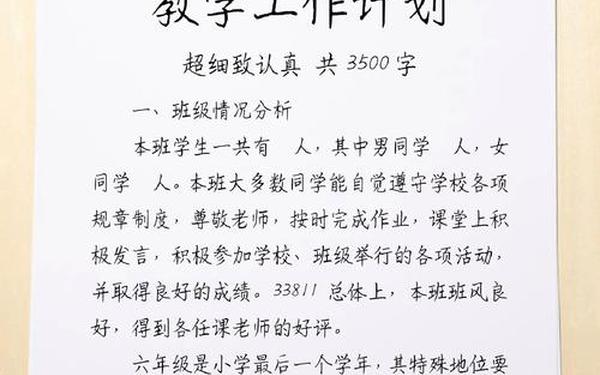 教学工作计划
超细致认真 共3500字
一、班级情况分析
本班学生一共有 人，其中男同学 人，女
同学 人。本班大多数同学能自觉遵守学校各项
规章制度，尊敬老师，按时完成作业，课堂上积
极发言，积极参加学校、班级举行的各项活动，
并取得良好的成绩。33811 总体上，本班班风良
好，得到各任课老师的好评。
六年级是小学最后一个学年，其特殊地位要